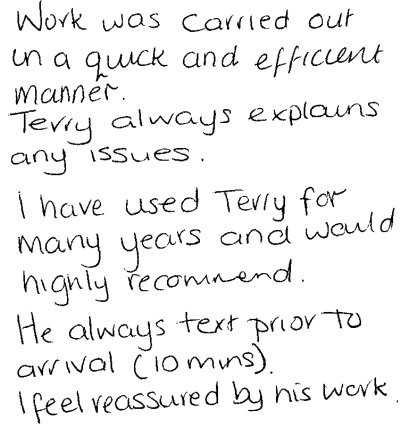 Work was carried out
in a quick and efficient
manner.
Terry always explains
any issues.
I have used Terry for
many years and would
highly recommend.
He always text prior to
arrival (10 mins).
I feel reassured by his work.